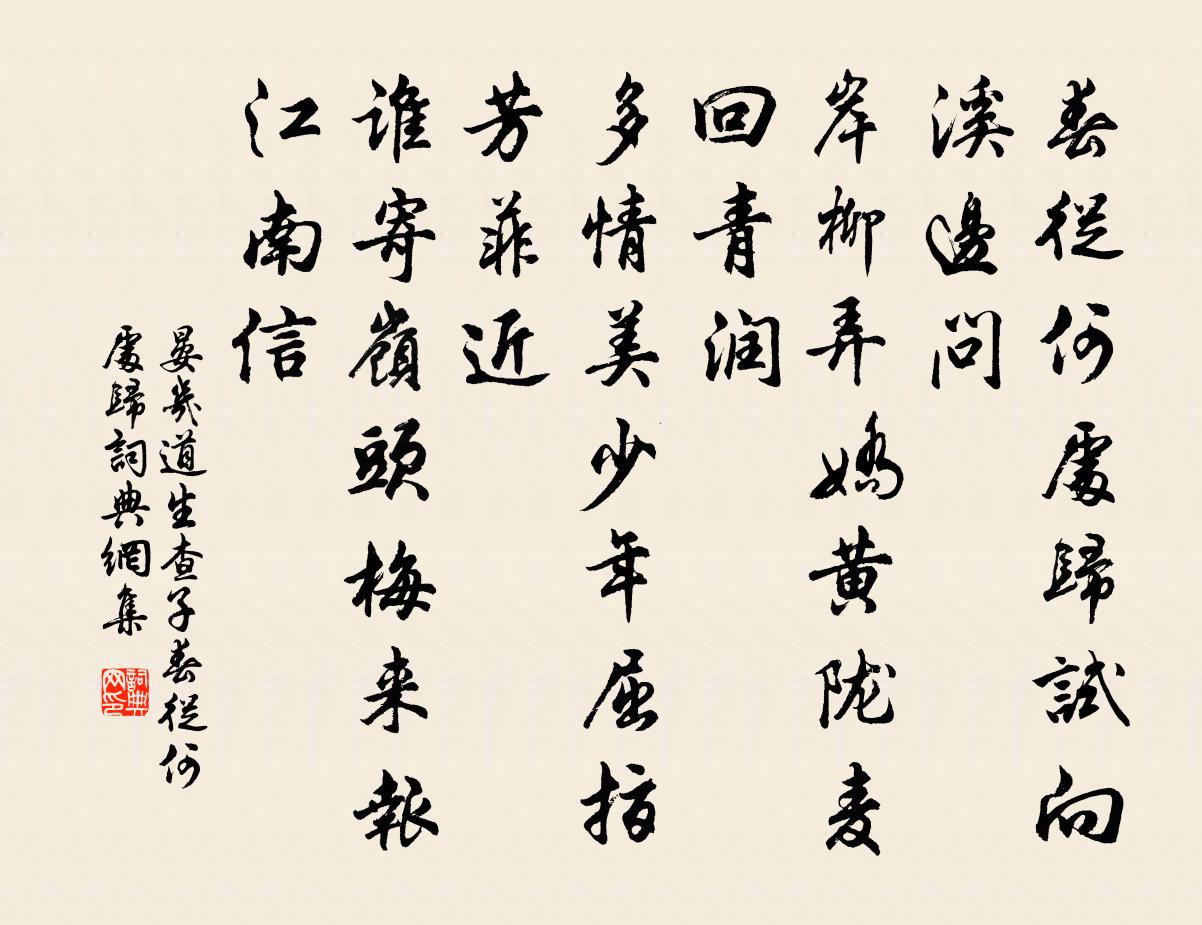 春從何處歸試向
溪邊問
岸柳弄嬌黄陇麦
回青润
多情美少年屈指
芳菲近
谁寄嶺頭梅来報
江南信
晏幾道生查子春從何
處歸詞典網集
詞典网印